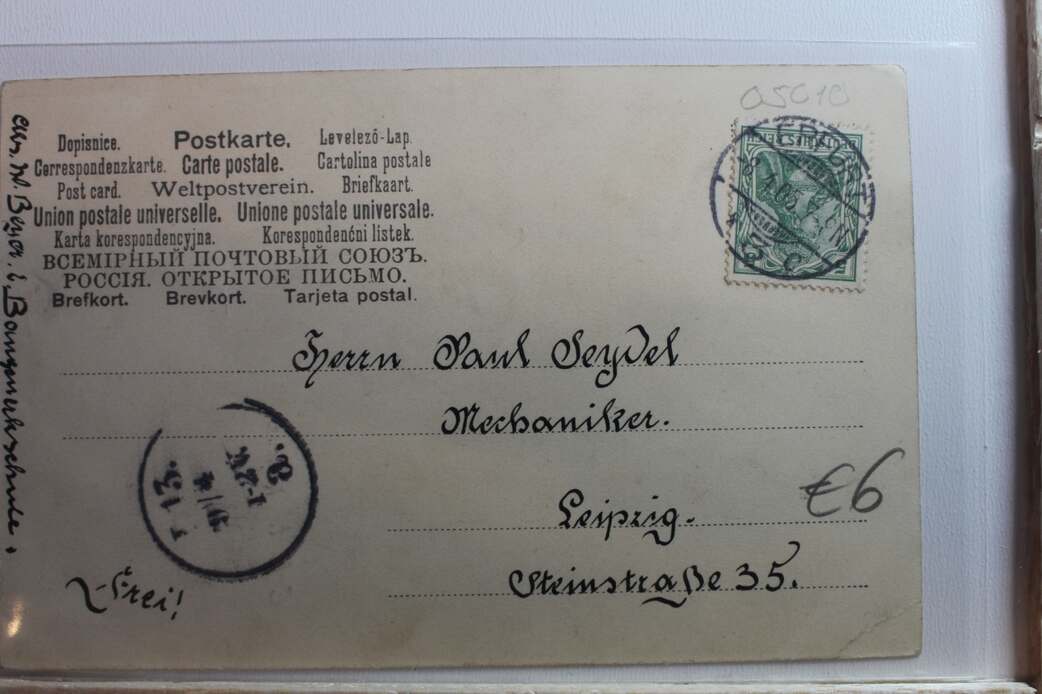 05010
Dopisnice. Postkarte. Levelező-Lap.
Correspondenzkarte. Carte postale. Cartolina postale
Post card. Weltpostverein. Briefkaart.
Union postale universelle. Unione postale universale.
Karta korespondencyjna. Korespondenční listek.
ВСЕМІРНЫЙ ПОЧТОВЫЙ СОЮЗЪ.
РОССІЯ. ОТКРЫТОЕ ПИСЬМО.
Brefkort. Brevkort. Tarjeta postal.
DEUTSCHES REICH
Herrn Paul Seydel
Mechaniker.
Leipzig.
Steinstraße 35.
€6
Frei!